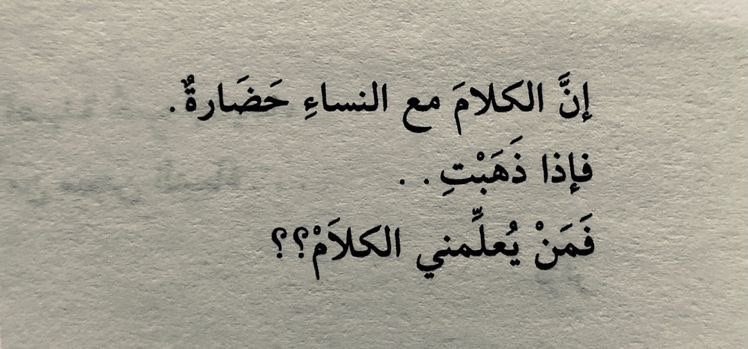 إنَّ الكلامَ مع النساءِ حَضَارةٌ.
فإذا ذَهَبْتِ . .
فَمَنْ يُعلِّمني الكلاَمْ؟؟